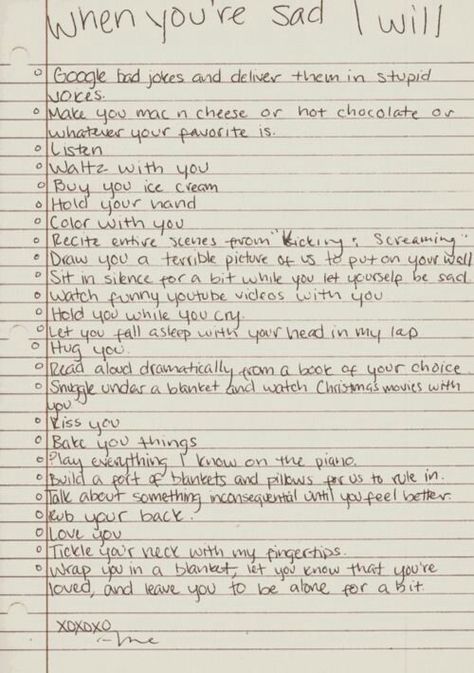 When you're sad I will
○ Google bad jokes and deliver them in stupid
voices.
○ Make you mac n cheese or hot chocolate or
whatever your favorite is.
○ Listen
○ Waltz with you
○ Buy you ice cream
○ Hold your hand
○ Color with you
○ Recite entire scenes from "Kicking & Screaming"
○ Draw you a terrible picture of us to put on your wall
○ Sit in silence for a bit while you let yourself be sad
○ Watch funny youtube videos with you
○ Hold you while you cry.
○ Let you fall asleep with your head in my lap
○ Hug you.
○ Read aloud dramatically from a book of your choice
○ Snuggle under a blanket and watch Christmas movies with
you
○ Kiss you
○ Bake you things
○ Play everything I know on the piano.
○ Build a fort of blankets and pillows for us to rule in.
○ Talk about something inconsequential until you feel better.
○ Rub your back.
○ Love you
○ Tickle your neck with my fingertips.
○ Wrap you in a blanket, let you know that you're
loved, and leave you to be alone for a bit.
xoxoxo
~me